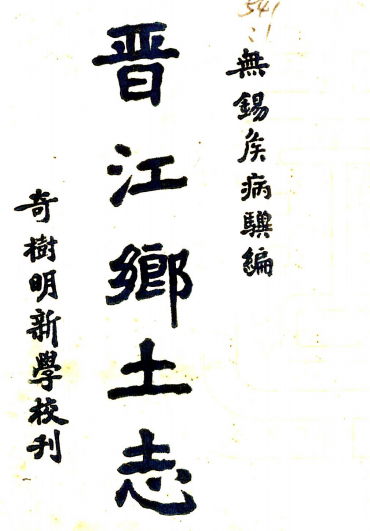 541
無錫侯病驥編
晋江鄉土志
奇樹明新學校刊